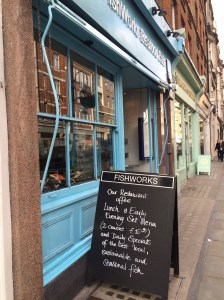 FISHWORKS
FISHWORKS
Our Restaurant
offers
Lunch & Early
Evening Set Menu
(2 courses
and Daily Specials
of the best local,
sustainable and
seasonal fish